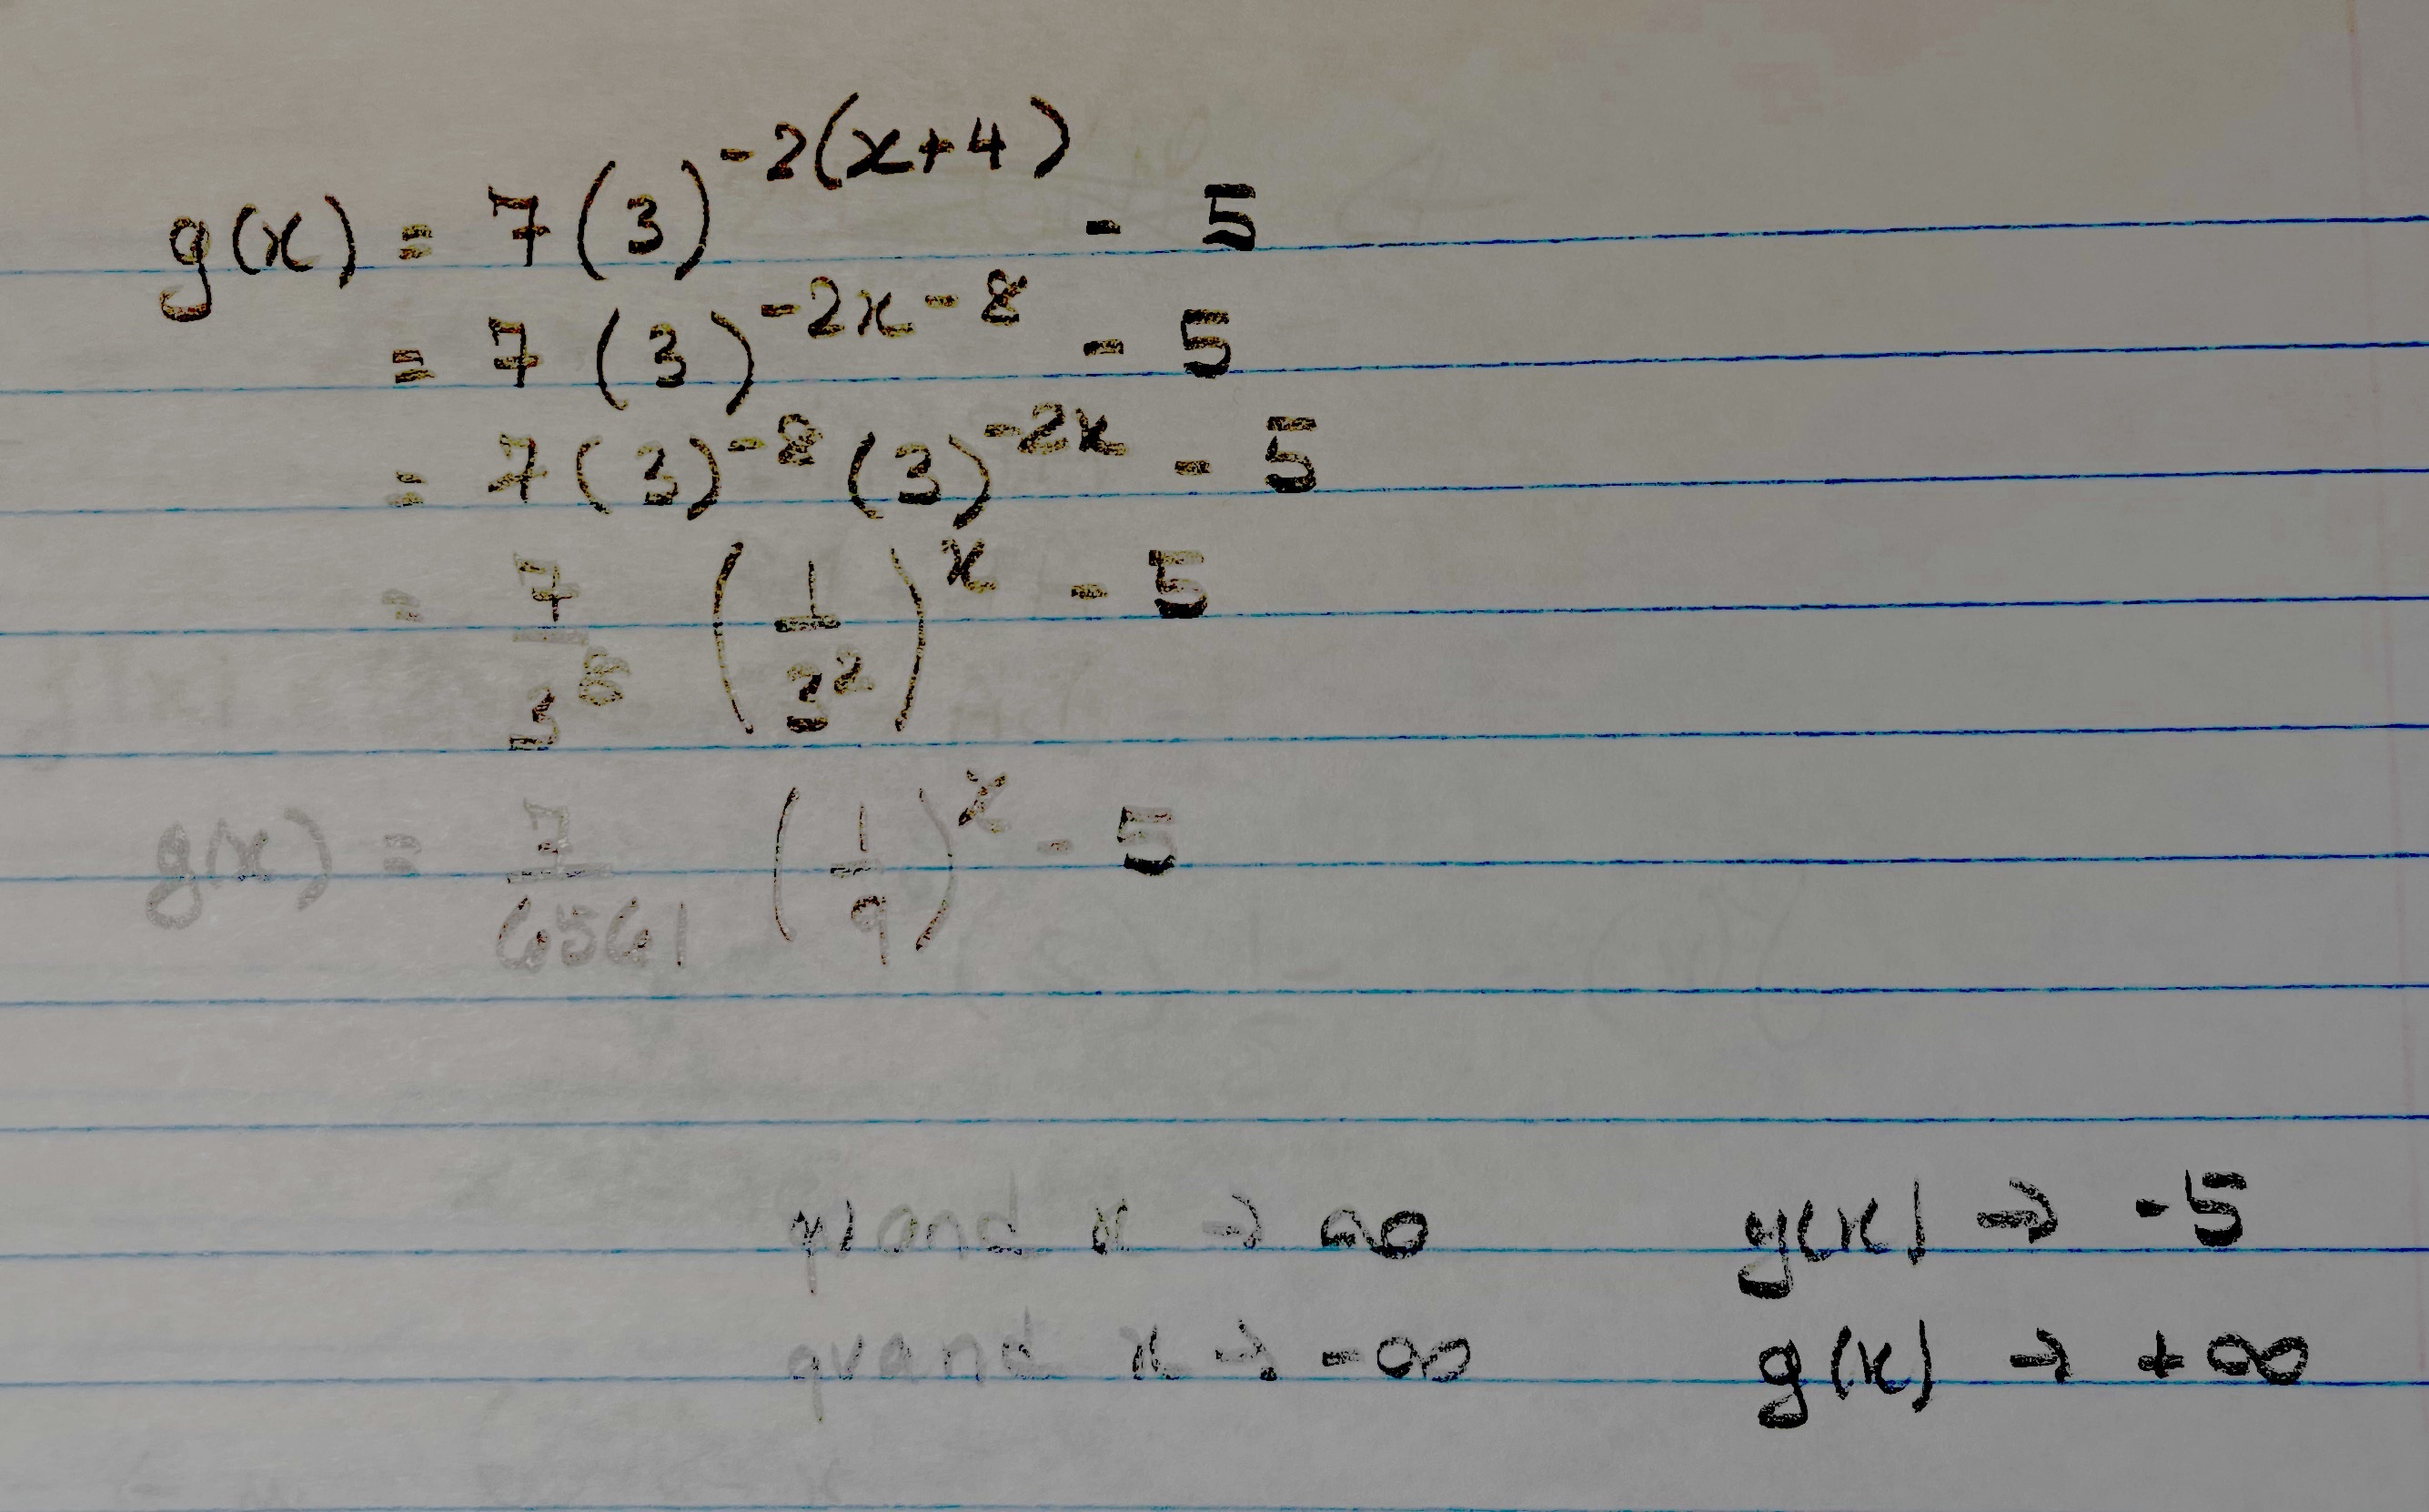 g(x) = 7(3)^{-2(x+4)} - 5
= 7(3)^{-2x-8} - 5
= 7(3)^{-8}(3)^{-2x} - 5
= \frac{7}{3^8} \left(\frac{1}{3^2}\right)^x - 5
g(x) = \frac{7}{6561} \left(\frac{1}{9}\right)^x - 5
quand x → ∞ g(x) → -5
quand x → -∞ g(x) → +∞